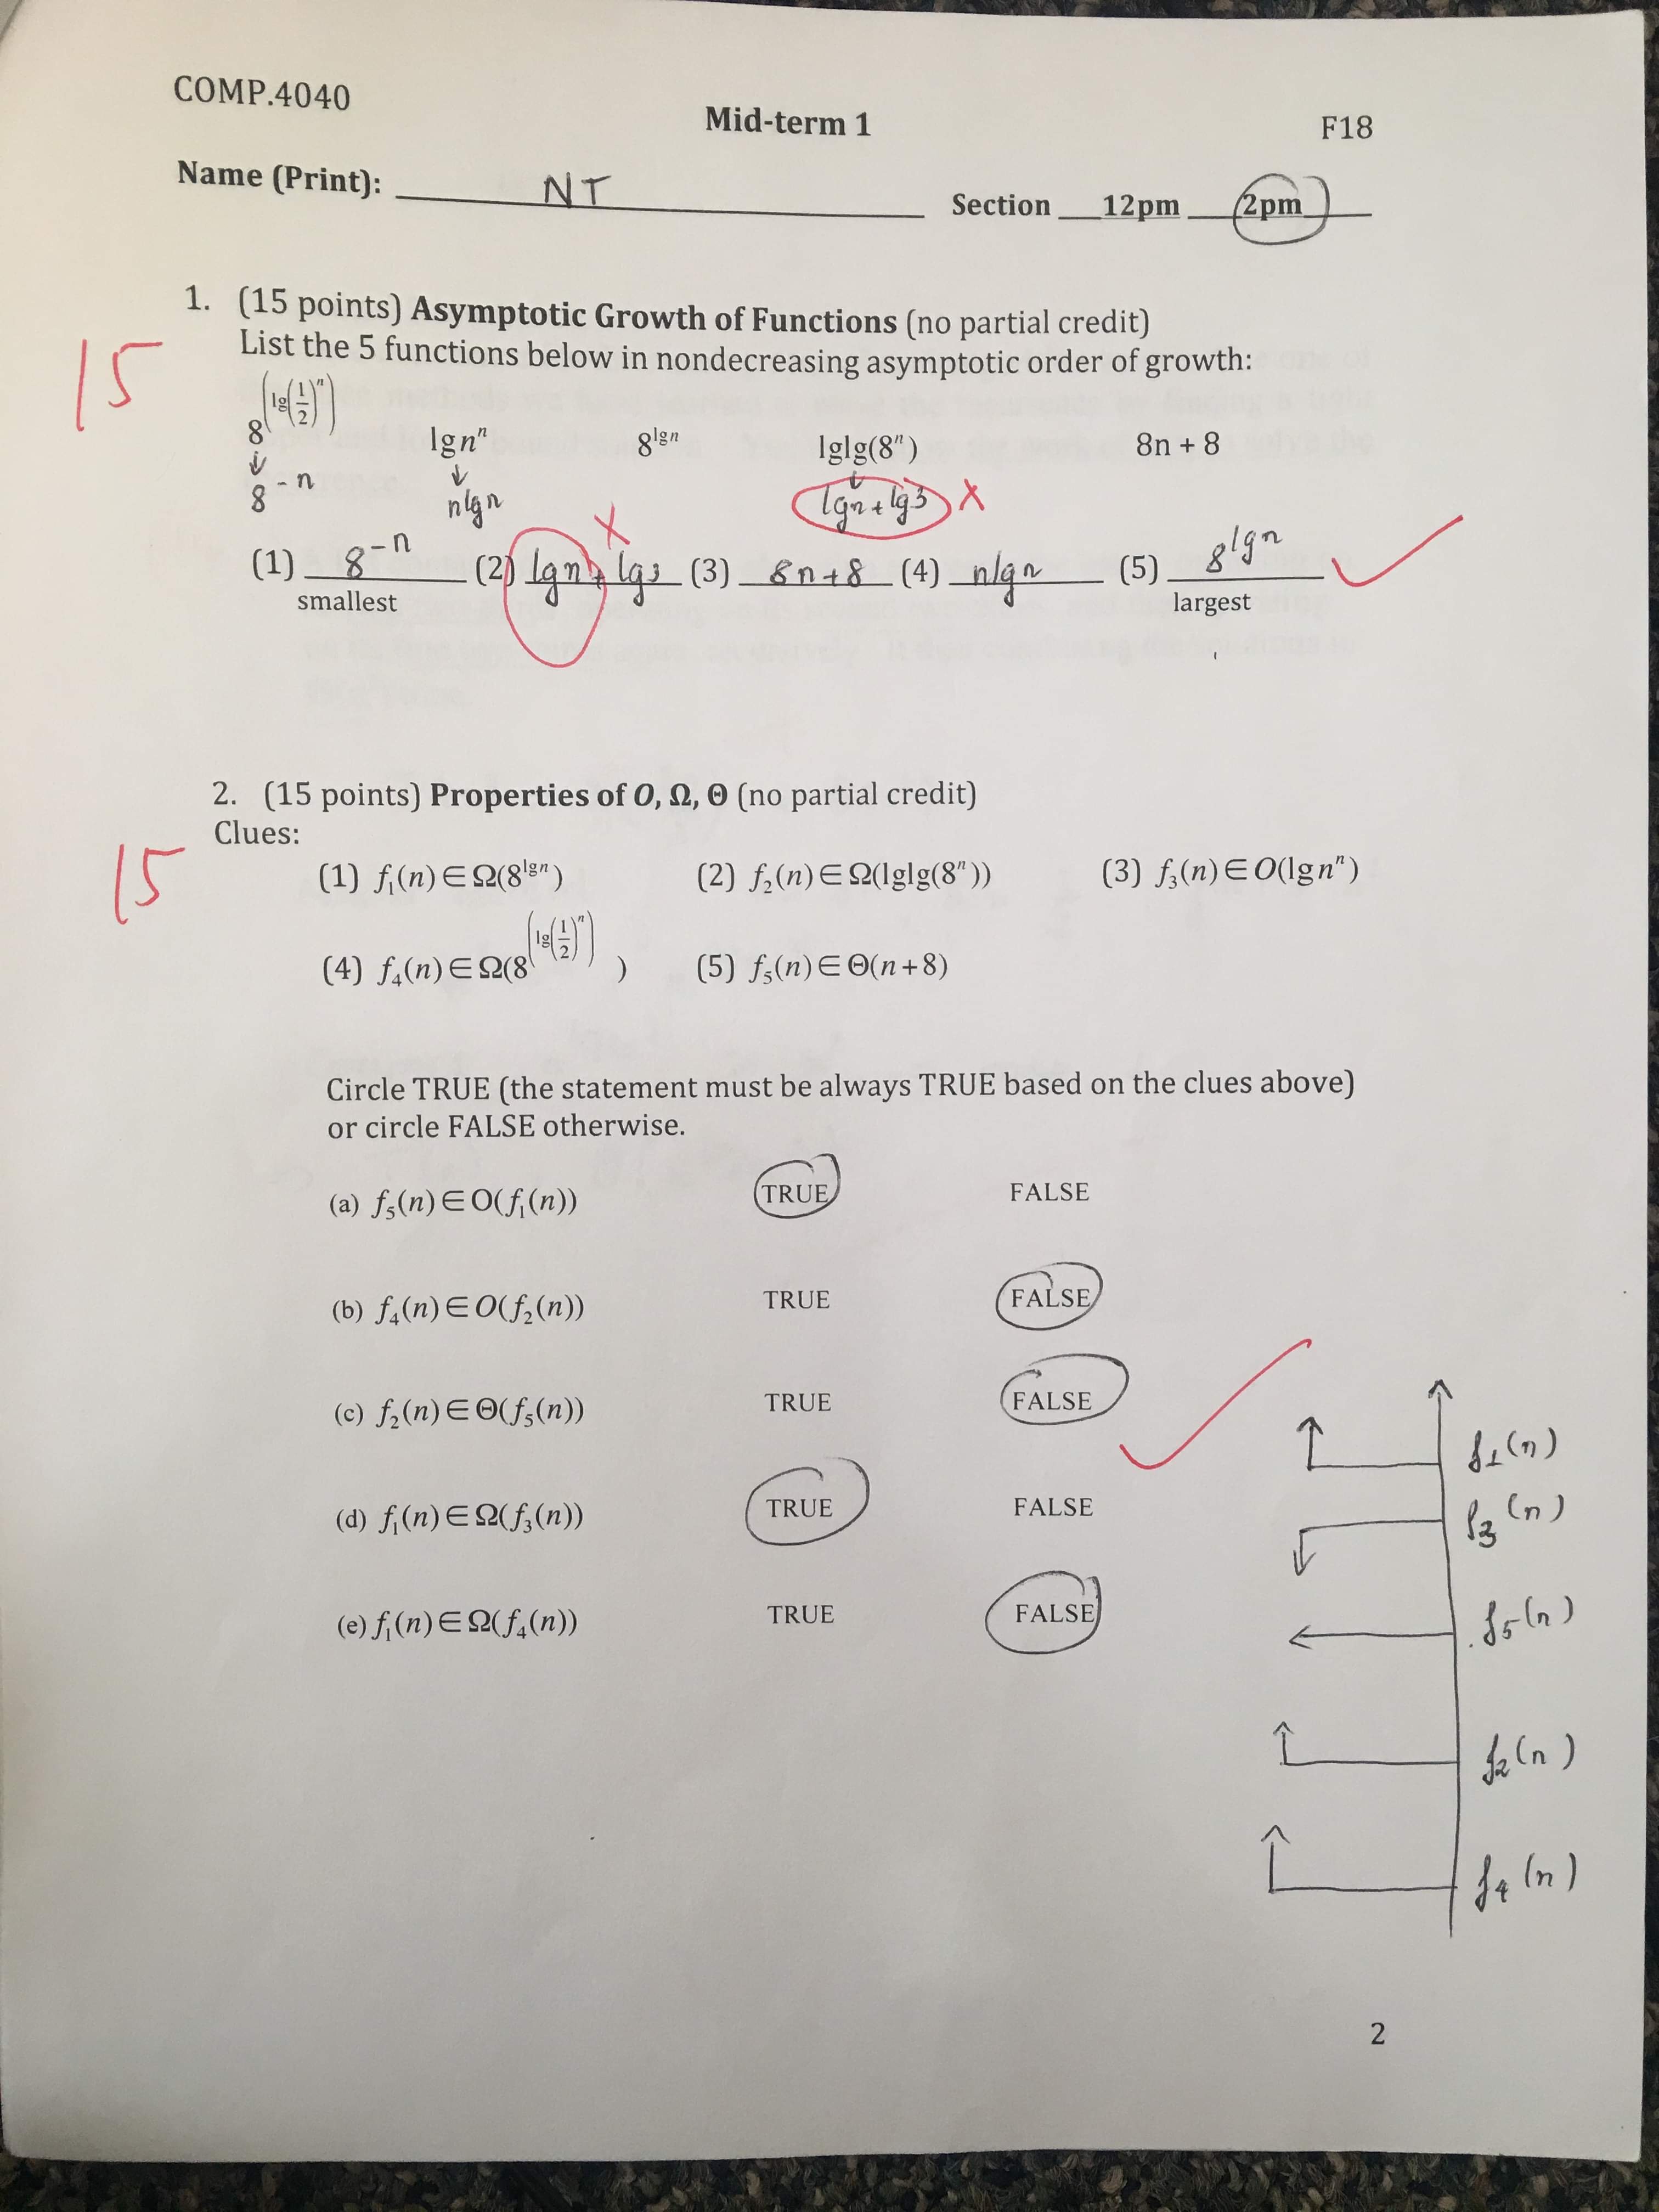 COMP.4040
Mid-term 1
F18
Name (Print): NT Section 12pm 2pm
15
1. (15 points) Asymptotic Growth of Functions (no partial credit)
List the 5 functions below in nondecreasing asymptotic order of growth:
8^(lg(1/2)^n) lgn^n 8^lgn lglg(8^n) 8n + 8
↓ ↓ ↓
8^-n nlgn lgn + lg3 X
X
(1) 8^-n (2) lgn + lg3 (3) 8n+8 (4) nlgn (5) 8^lgn
smallest largest
15
2. (15 points) Properties of O, Ω, Θ (no partial credit)
Clues:
(1) f₁(n)∈Ω(8^lgn) (2) f₂(n)∈Ω(lglg(8^n)) (3) f₃(n)∈O(lgn^n)
(4) f₄(n)∈Ω(8^(lg(1/2)^n)) (5) f₅(n)∈Θ(n+8)
Circle TRUE (the statement must be always TRUE based on the clues above)
or circle FALSE otherwise.
(a) f₅(n)∈O(f₁(n)) TRUE FALSE
(b) f₄(n)∈O(f₂(n)) TRUE FALSE
(c) f₂(n)∈Θ(f₅(n)) TRUE FALSE
(d) f₁(n)∈Ω(f₃(n)) TRUE FALSE
(e) f₁(n)∈Ω(f₄(n)) TRUE FALSE
f₁(n)
f₃(n)
f₅(n)
f₂(n)
f₄(n)
2